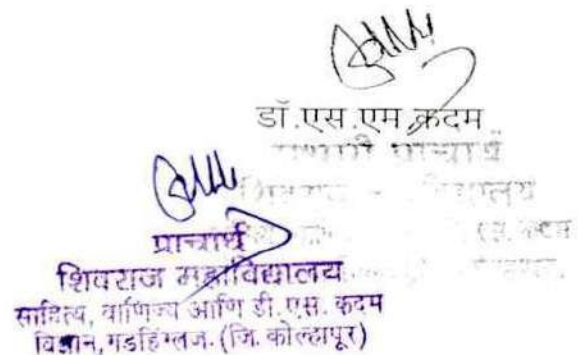 डॉ.एस.एम.कदम
प्रभारी प्राचार्य
प्राचार्य
शिवराज महाविद्यालय
साहित्य, वाणिज्य आणि डी.एस. कदम
विज्ञान,गडहिंग्लज.(जि.कोल्हापूर)